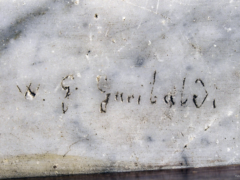 W. G. Garibaldi